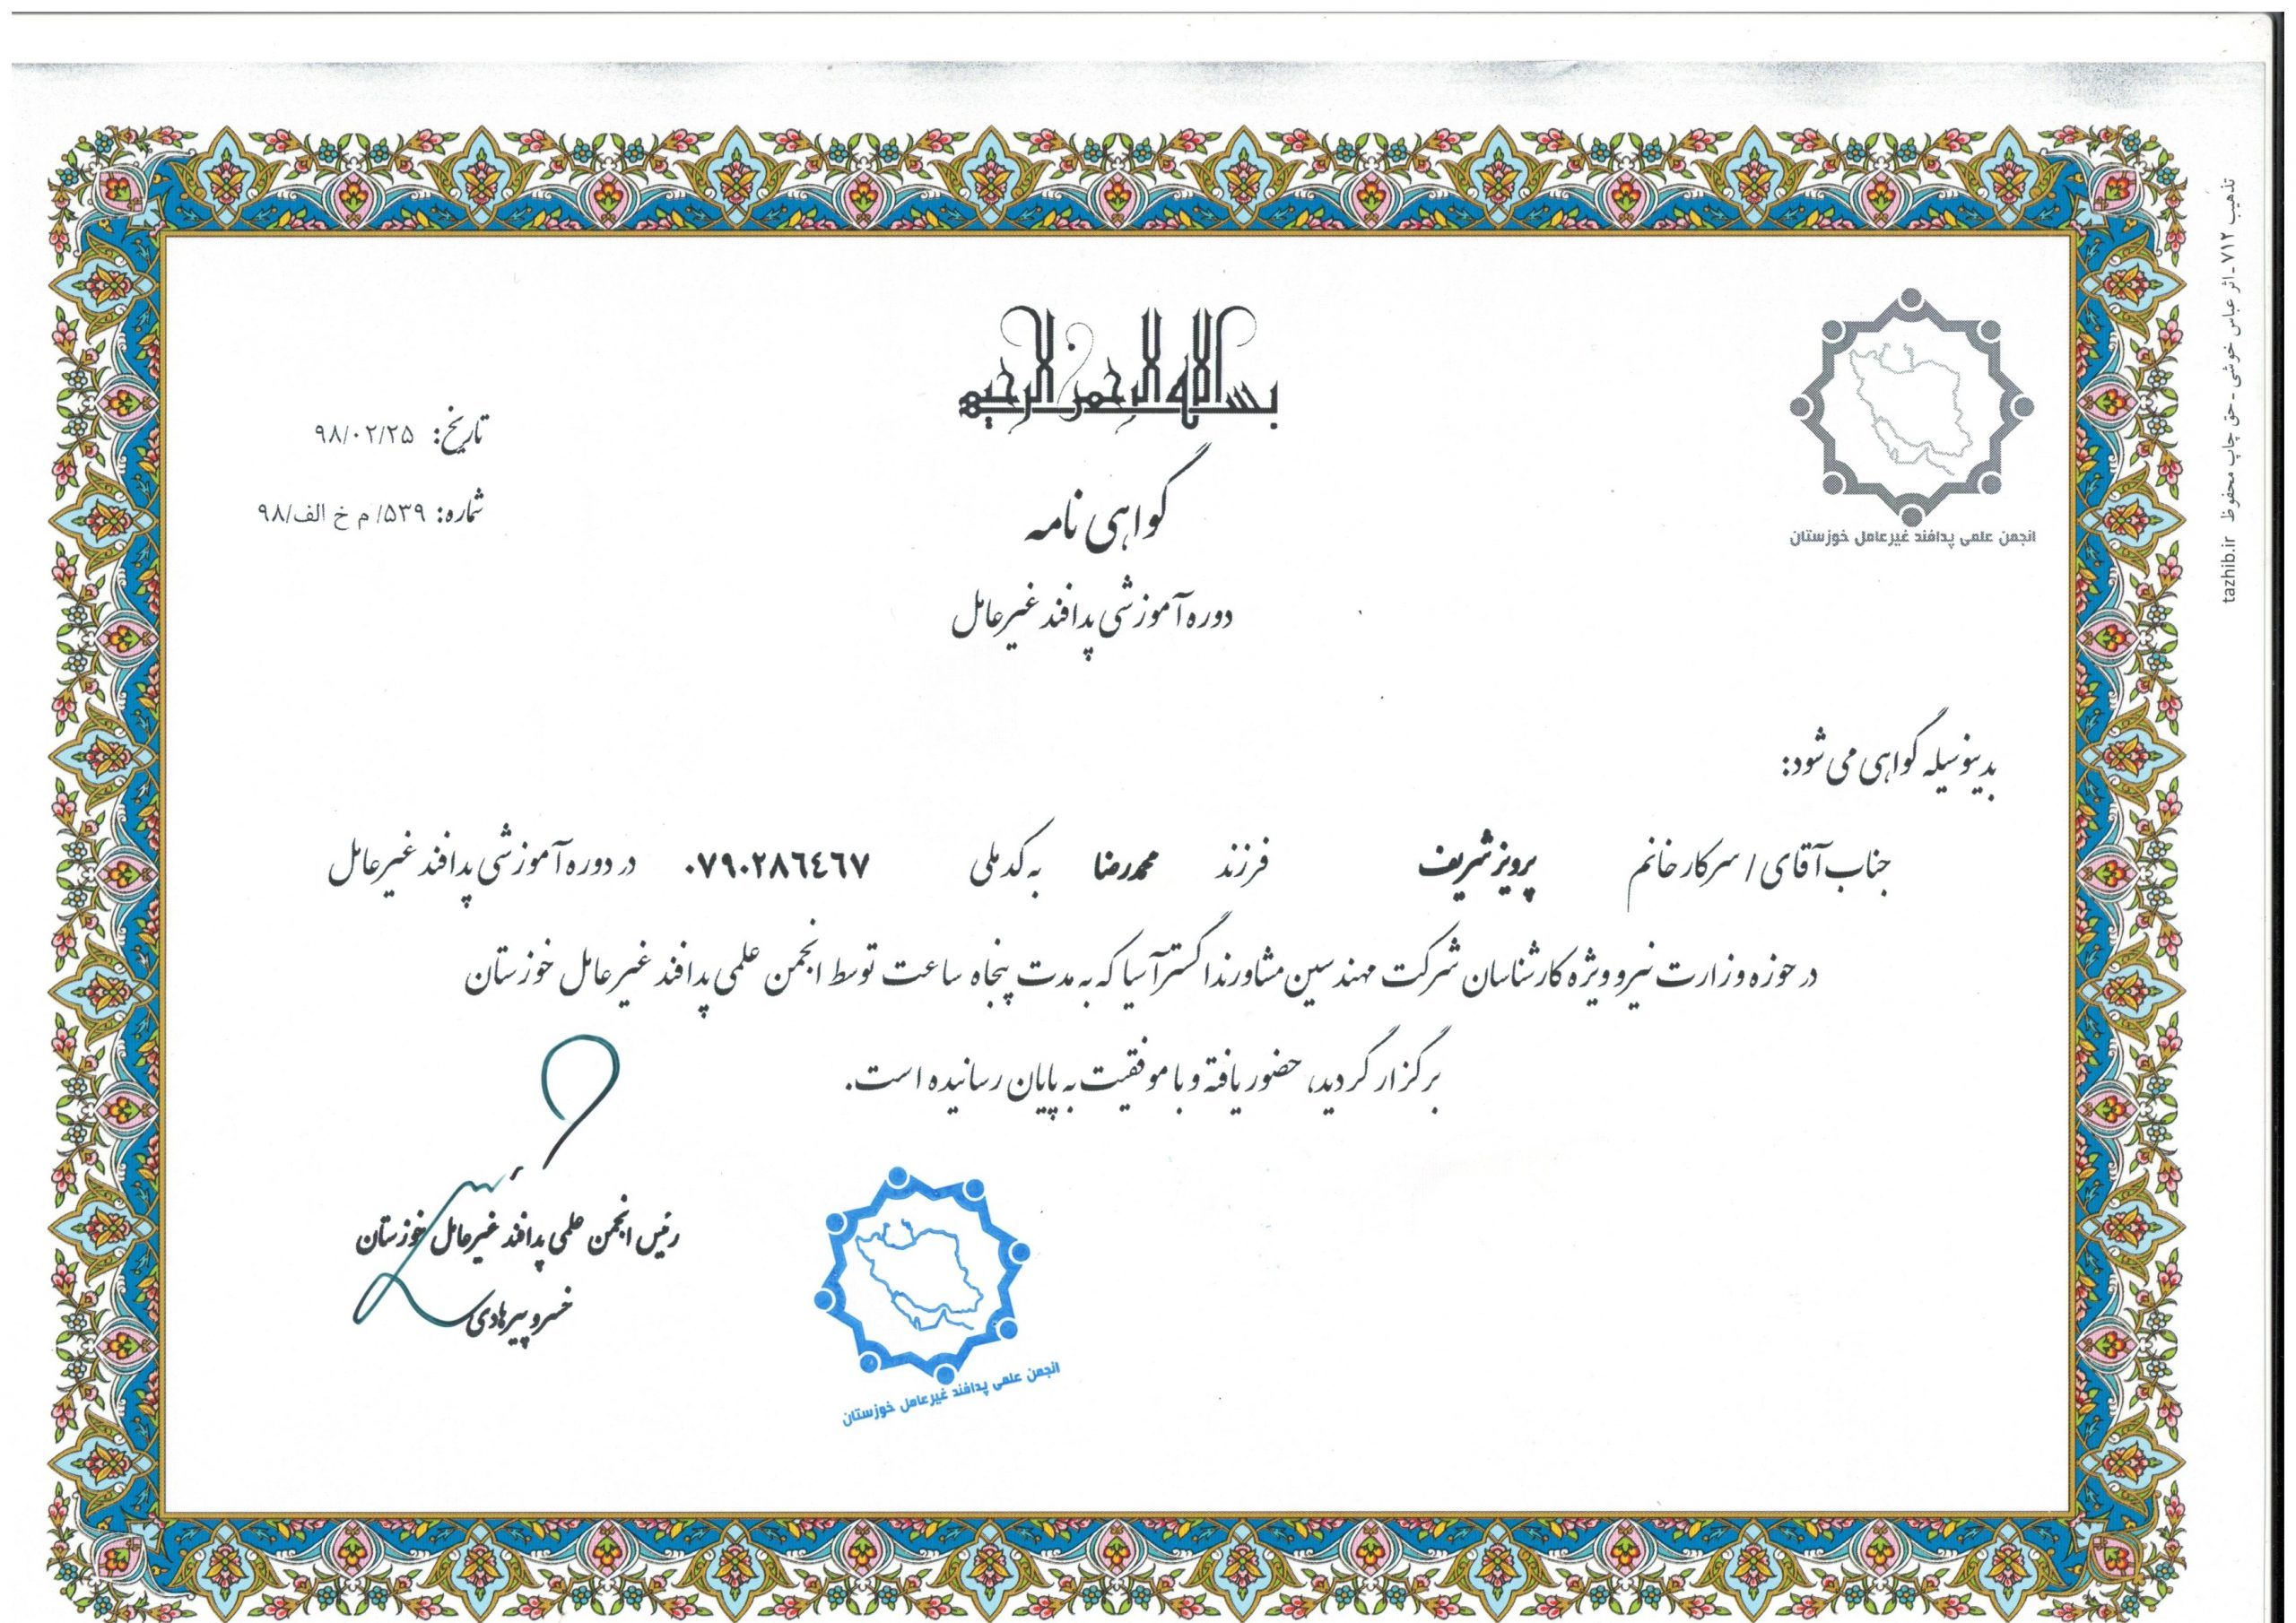 بسم الله الرحمن الرحیم
انجمن علمی پدافند غیرعامل خوزستان
تاریخ: ۹۸/۰۲/۲۵
شماره: ۵۳۹/ م خ الف/۹۸
گواهی نامه
دوره آموزشی پدافند غیرعامل
بدینوسیله گواهی می شود:
جناب آقای / سرکار خانم پرویز شریف فرزند محمدرضا به کد ملی ۰۷۹۰۲۸٦٤٦۷ در دوره آموزشی پدافند غیرعامل
در حوزه وزارت نیرو ویژه کارشناسان شرکت مهندسین مشاور ندا گستر آسیا که به مدت پنجاه ساعت توسط انجمن علمی پدافند غیرعامل خوزستان
برگزار گردید، حضور یافته و با موفقیت به پایان رسانیده است.
رئیس انجمن علمی پدافند غیرعامل خوزستان
خسرو پیرهادی
انجمن علمی پدافند غیرعامل خوزستان
تذهیب ۷۱۲ - اثر عباس خوشی - حق چاپ محفوظ tazhib.ir